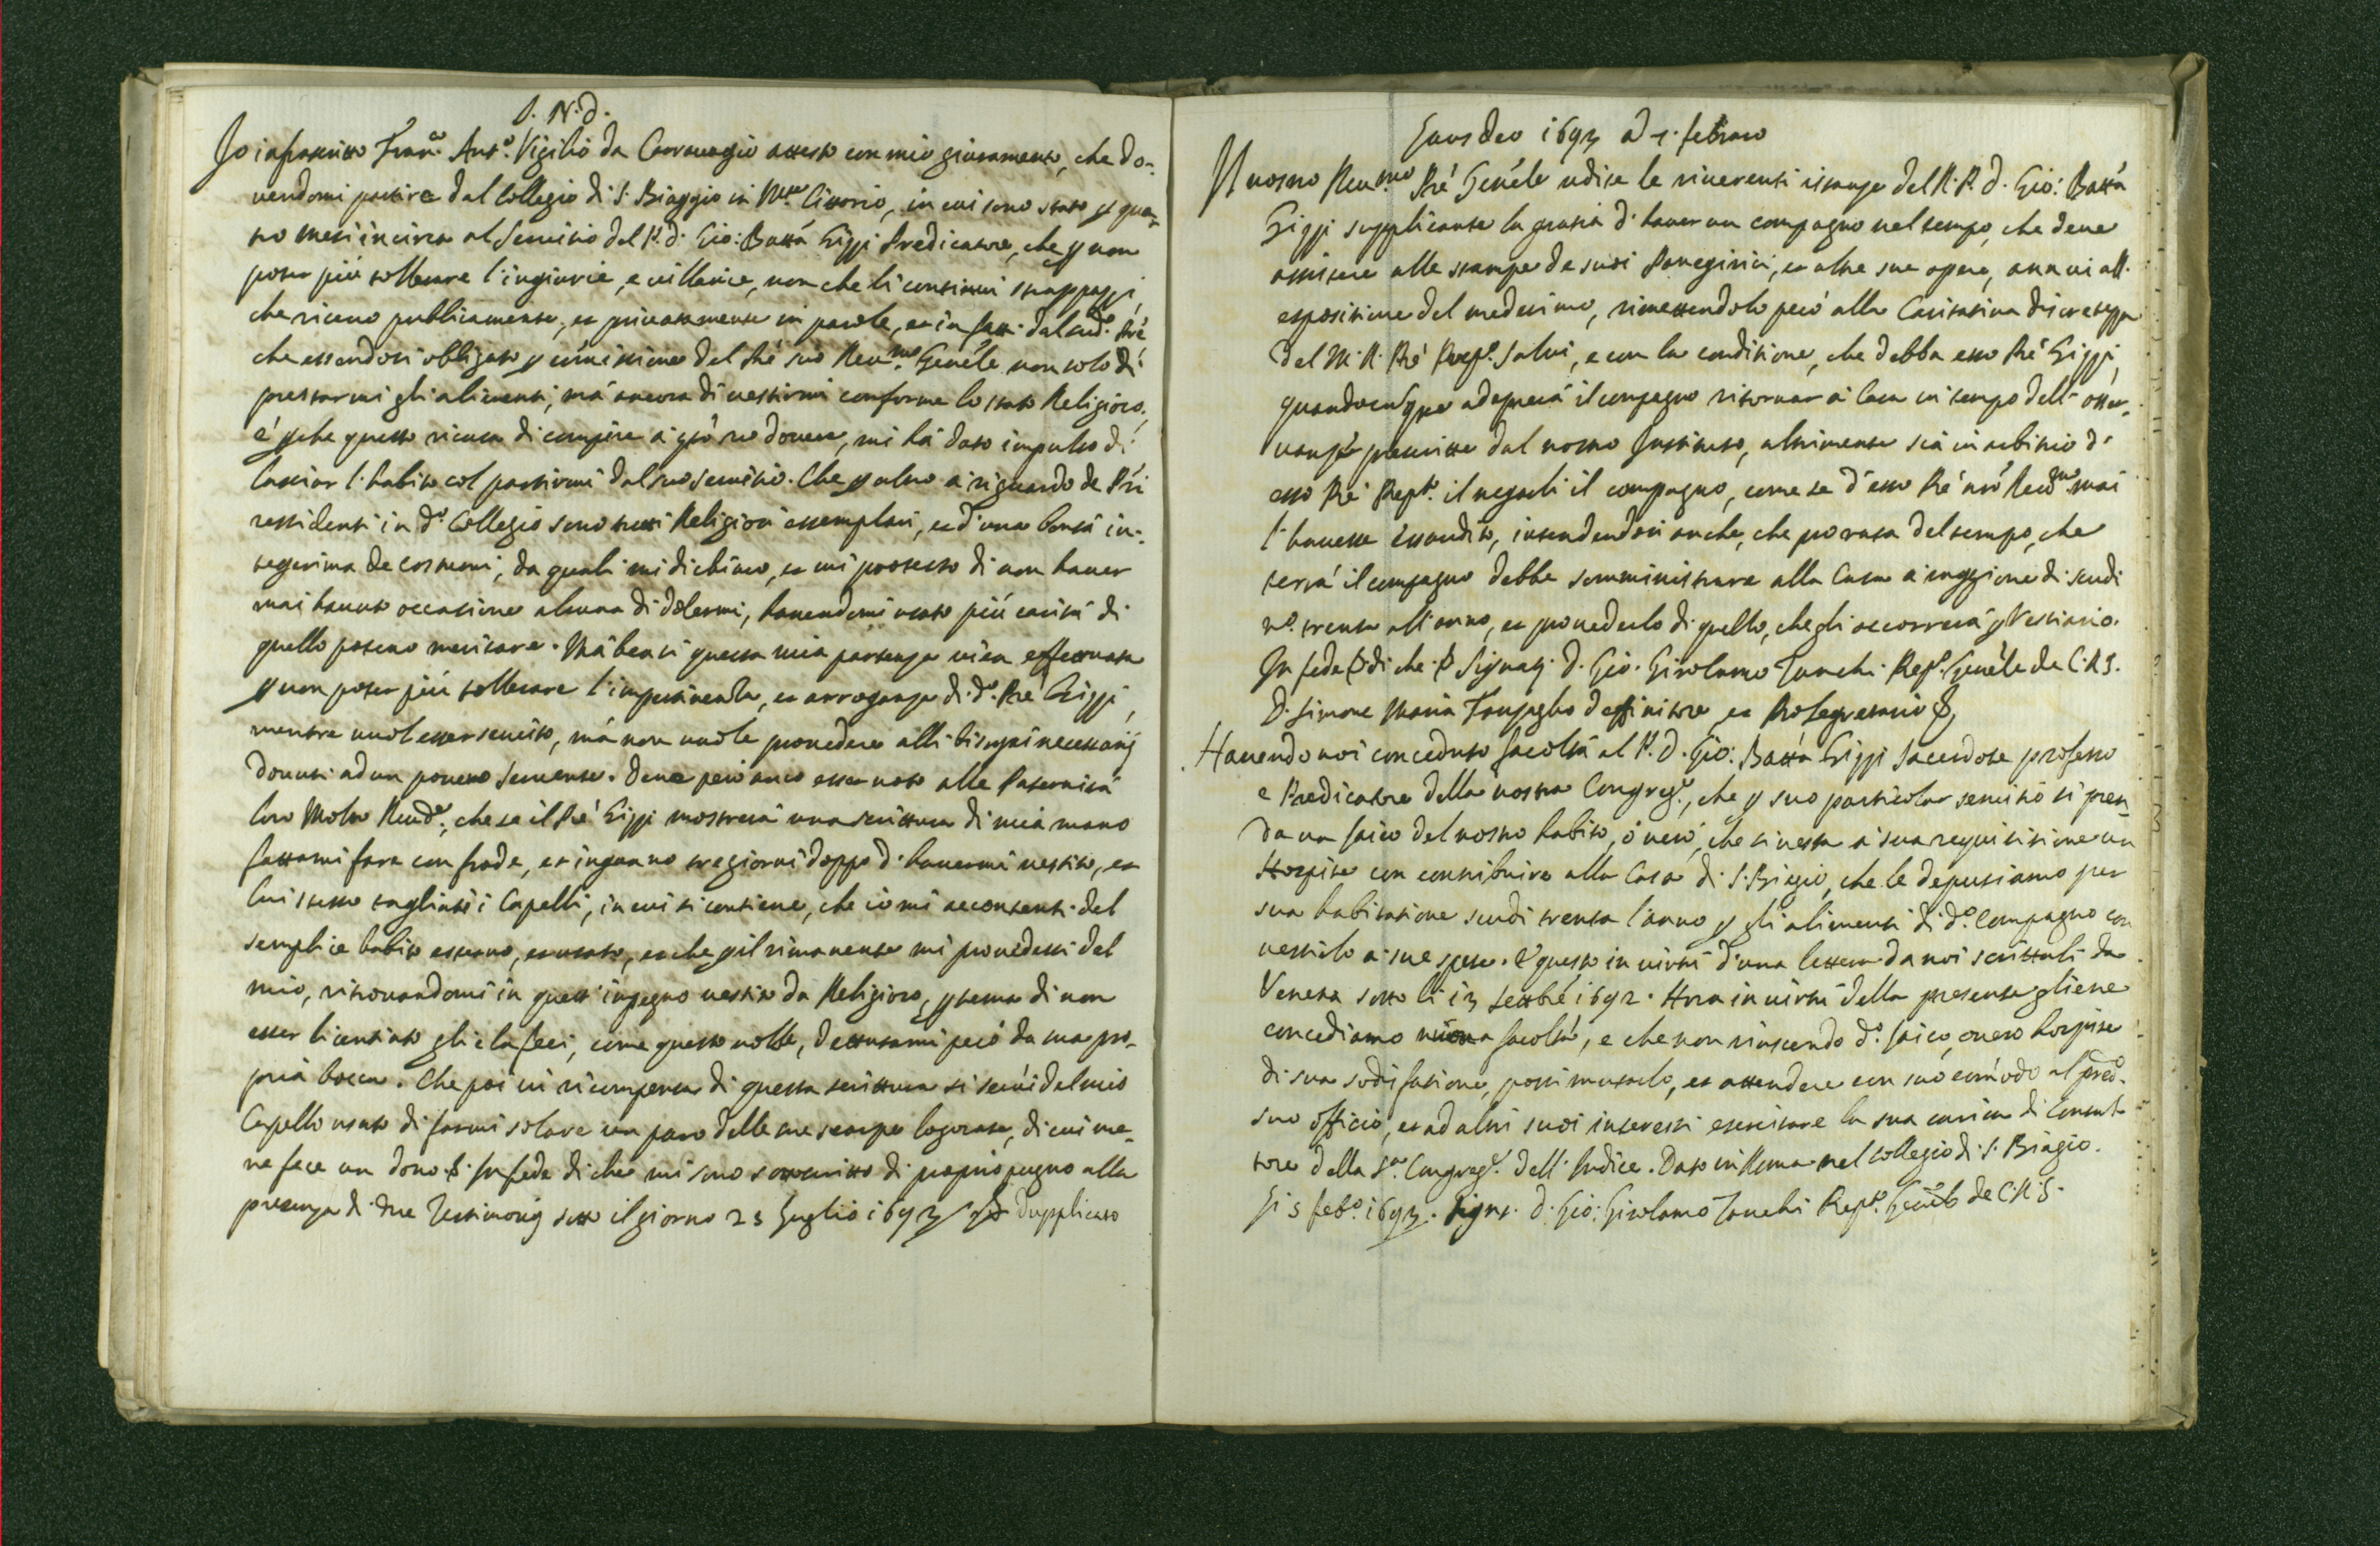 I. N. D.
Io infrascritto Fran.co Ant.o Vigilio da Carravagio attesto con mio giuramento, che do-
vendomi partire dal Collegio di S. Biaggio in M.te Citorio, in cui sono stato p qua-
tro mesi incirca al Servitio del P. D. Gio: Batta Gippi Predicatore, che p non
poter più tollerare l'ingiurie, e villanie, non che li continui strappazzi,
che ricevo publicamente, et privatamente in parole, et in fatti dal sud.o Pre
che essendosi obligato p cómissione del Pré suo Reu.mo Genéle non solo di
prestarmi gli alimenti, má ancora di vestirmi conforme lo stato Religioso,
é pche questo ricusa di compire a ció né dovere, mi há dato impulso di
lasciar l'habito col partirmi dal suo servitio. Che p altro a riguardo de Pri
residenti in d.o Collegio sono tutti Religiosi essemplari, et d'una bontà in-
tegerima de costumi, da quali mi dichiaro, et mi protesto di non haver
mai havuto occasione alcuna di dolermi, havendomi usato più carità di
quello potevo meritare. Má bensi questa mia partenza vien effettuata
p non poter più tollerare l'impertinenza, et arroganza di d.o Pré Gippi,
mentre vuol esser servito, má non vuole provedere alli bisogni necessarij
dovuti ad un povero servente. Deve peró anco esser noto alle Paternità
loro Molto Reud.e, che se il Pré Gippi mostrerà una scrittura di mia mano
fattami fare con frode, et inganno tre giorni doppo d'havermi vestito, et
lui stesso tagliati i Capelli, in cui si contiene, che io mi accontenti del
semplice habito esterno, et usato, et che p il rimanente mi provedessi del
mio, ritrovandomi in quest'impegno vestito da Religioso, p tema di non
esser licentiato gli e la feci, come questo volle, dettatami peró da sua pro-
pria bocca. Che poi in ricompensa di questa scrittura si serví del mio
Capello usato di farmi solare un paro delle sue scarpe logorate, di cui me-
ne fece un dono. In fede di che mi sono sottoscritto di proprio pugno alla
presenza di due Testimonij sotto il giorno 23 Luglio 1693 Dupplicato
Laus Deo 1693 a di 1. febraro
Il nostro Reu.mo Pré Genéle udite le riverenti istanze del R. P. D. Gio: Batta
Gippi supplicante la gratia d'haver un compagno nel tempo, che deve
assistere alle stampe de suoi Panegirici, et altre sue opere, annui all'
espositione del medesimo, rimettendolo peró alla Caritativa discretezza
del M. R. Pré Prep.o Salvi, e con la conditione, che debba esso Pré Gippi,
quandocunque adoprerà il compagno ritornar a Casa in tempo dell'osser-
vanze prescritte dal nostro Instituto, altrimente sia in arbitrio d'
esso Pré Prep.o il negarli il compagno, come se d'esso Pré nró Reu.mo mai
l'havesse essaudito, intendendosi anche, che pro rata del tempo, che
terrà il compagno debba somministrare alla Casa a raggione di scudi
n.o trenta all'anno, et provederlo di quello, che gli occorrerà p Vestiario.
In fede di che Signat. D. Gio. Girolamo Zanchi Prep.o Genéle de C.R.S.
D. Simone Maria Fanzaglio Deffinitore et Prosegretario
Havendo noi conceduto facoltà al P. D. Gio: Batta Gippi Sacerdote professo
e Predicatore della nostra Congreg.e, che p suo particolar servitio si pren-
da un laico del nostro habito, ó veró, che si vesta a sua requisitione un
Hospite con contribuire alla Casa di S. Biagio, che le deputiamo per
sua habitatione scudi trenta l'anno p gli alimenti di d.o Compagno con
vestirlo a sue spese. E questo in virtù d'una lettera da noi scrittali da
Venetia sotto li 13 Settbré 1692. Hora in virtù della presente gliene
concediamo nuova facoltà, e che non riuscendo d.o laico, overo hospite
di sua sodisfatione, possi mutarlo, et attendere con suo cómodo al pred.o
suo officio, et ad altri suoi interessi esercitare la sua carica di Consul-
tore della S.a Congreg.e dell'Indice. Dato in Roma nel Collegio di S. Biagio.
Li 5 feb.o 1693. Sign.t D. Gio: Girolamo Zanchi Prep.o Genéle de C.R.S.